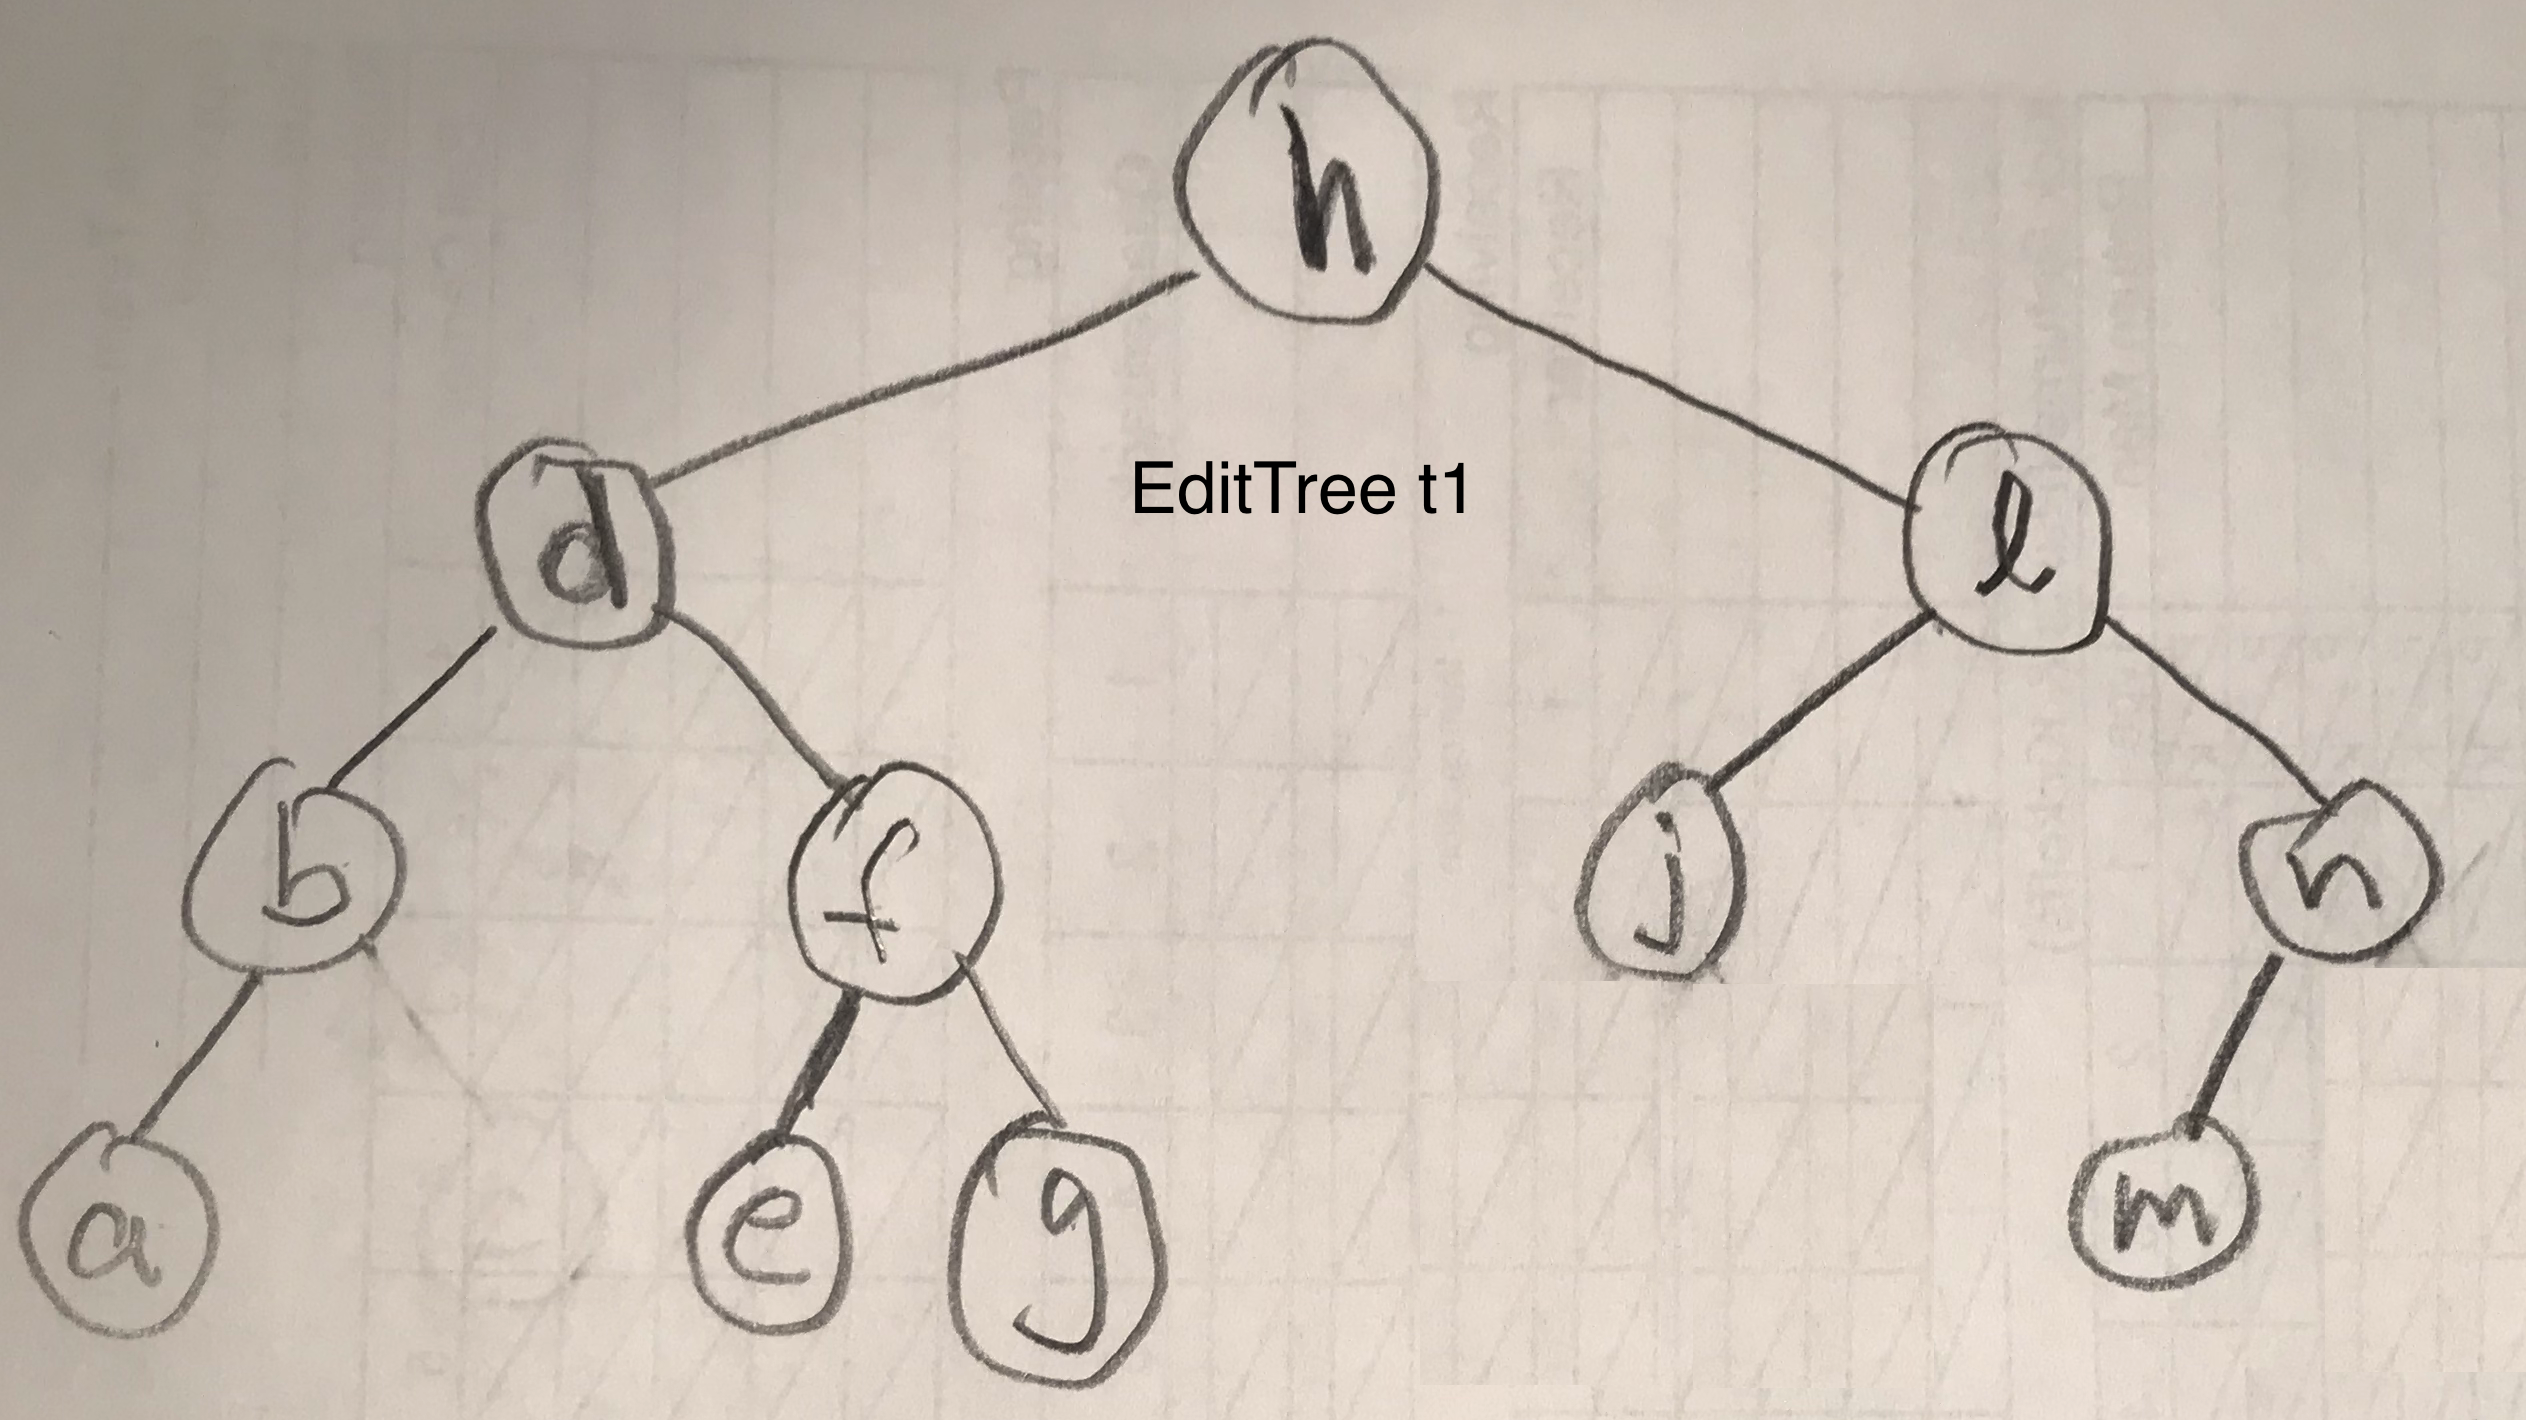 h
EditTree t1
d
l
b
f
j
n
a
e
g
m